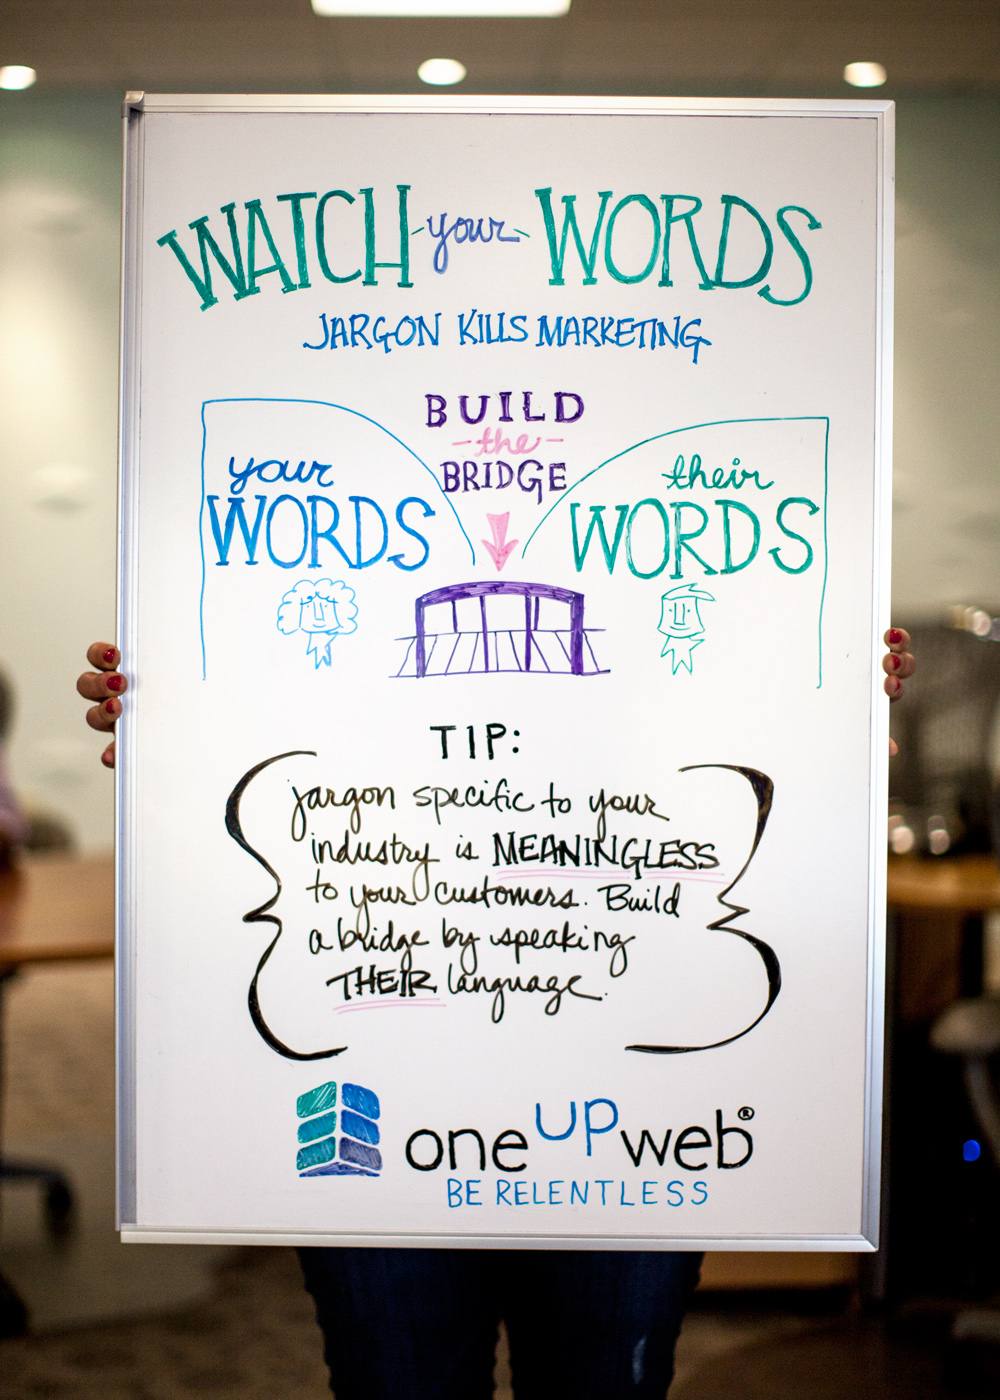 WATCH your WORDS
JARGON KILLS MARKETING
BUILD
the
BRIDGE
your
WORDS
their
WORDS
TIP:
jargon specific to your
industry is MEANINGLESS
to your customers. Build
a bridge by speaking
THEIR language.
oneupweb®
BE RELENTLESS